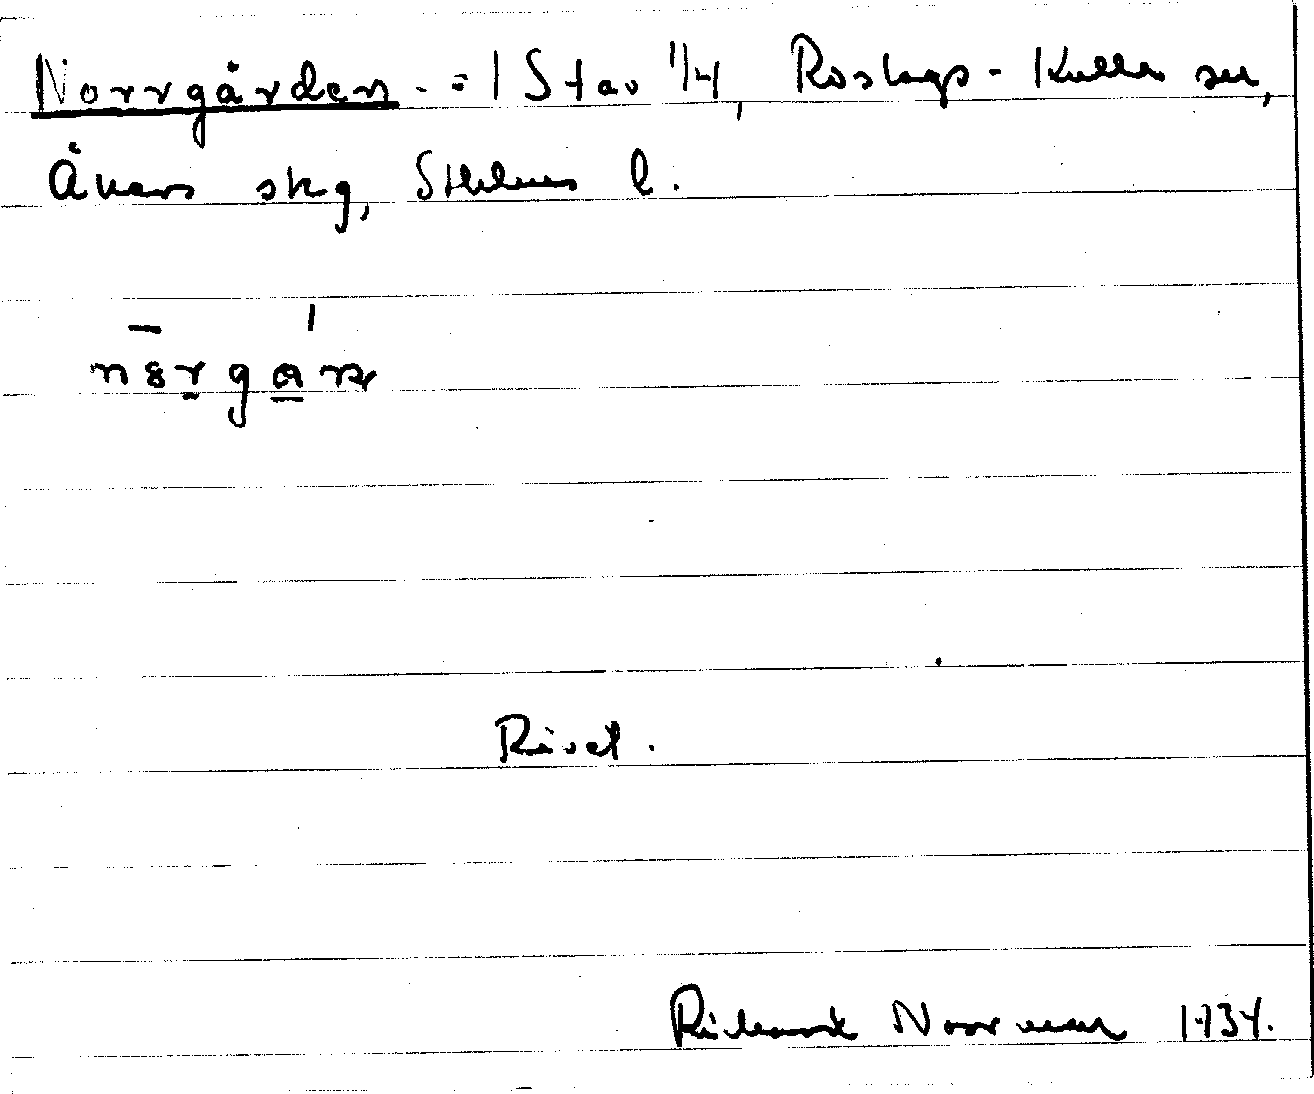 Norrgården. = 1 Stav 1/4, Roslags-Kulla sn,
Åkers skg, Sthlms l.
Rivet.
Rickard Norrman 1934.